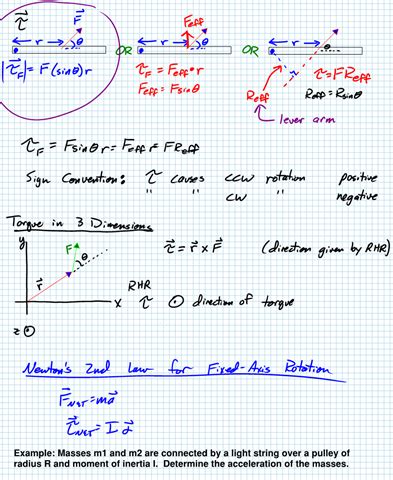 τ⃗
F⃗
r θ OR Feff r θ OR r θ
|τ⃗F| = F(sinθ)r
τF = Feff·r
Feff = Fsinθ
Reff
τ = FReff
Reff = Rsinθ
lever arm
τF = Fsinθ r = Feff r FReff
Sign Convention: τ causes CCW rotation positive
" " CW " negative
Torque in 3 Dimensions
y
F θ
r⃗
x
z
τ⃗ = r⃗ x F⃗ (direction given by RHR)
RHR
τ ⊙ direction of torque
Newton's 2nd Law for Fixed-Axis Rotation
F⃗NET = ma⃗
τ⃗NET = Iα⃗
Example: Masses m1 and m2 are connected by a light string over a pulley of
radius R and moment of inertia I. Determine the acceleration of the masses.